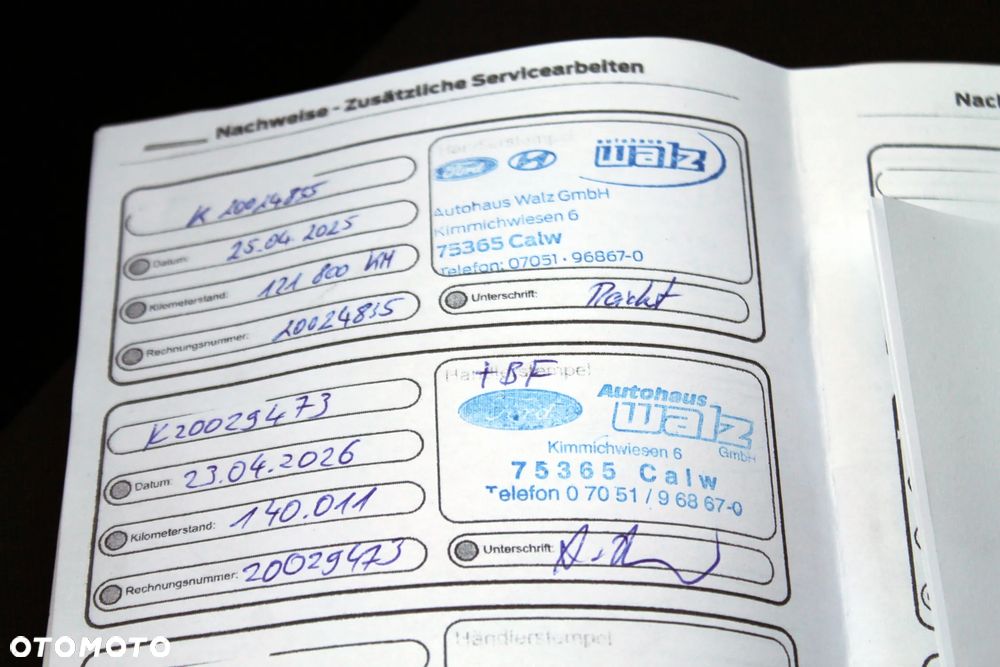 Nachweise - Zusätzliche Servicearbeiten
Nac
K 20024855
Datum: 25.04 2025
Kilometerstand: 121 800 KM
Rechnungsnummer: 20024835
Händlerstempel
Ford
autohaus
walz
Autohaus Walz GmbH
Kimmichwiesen 6
75365 Calw
Telefon: 07051 · 96867-0
Unterschrift:
K20029473
Datum: 23.04.2026
Kilometerstand: 140.011
Rechnungsnummer: 20029473
Händlerstempel
+BF
Ford
Autohaus
walz
GmbH
Kimmichwiesen 6
75365 Calw
Telefon 0 70 51 / 9 68 67-0
Unterschrift:
Händlerstempel
OTOMOTO